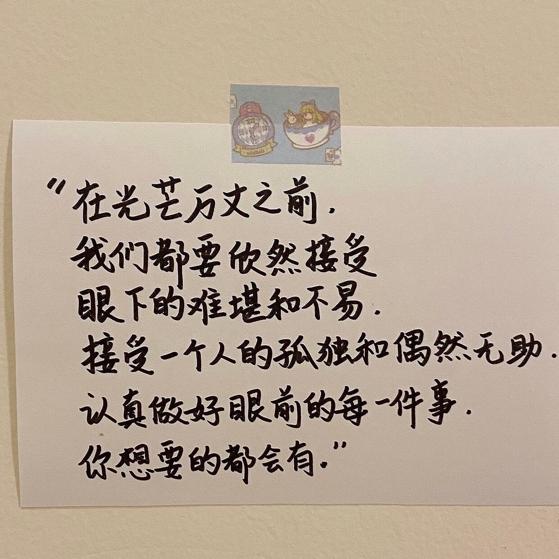 “在光芒万丈之前.
我们都要欣然接受
眼下的难堪和不易.
接受一个人的孤独和偶然无助.
认真做好眼前的每一件事.
你想要的都会有.”